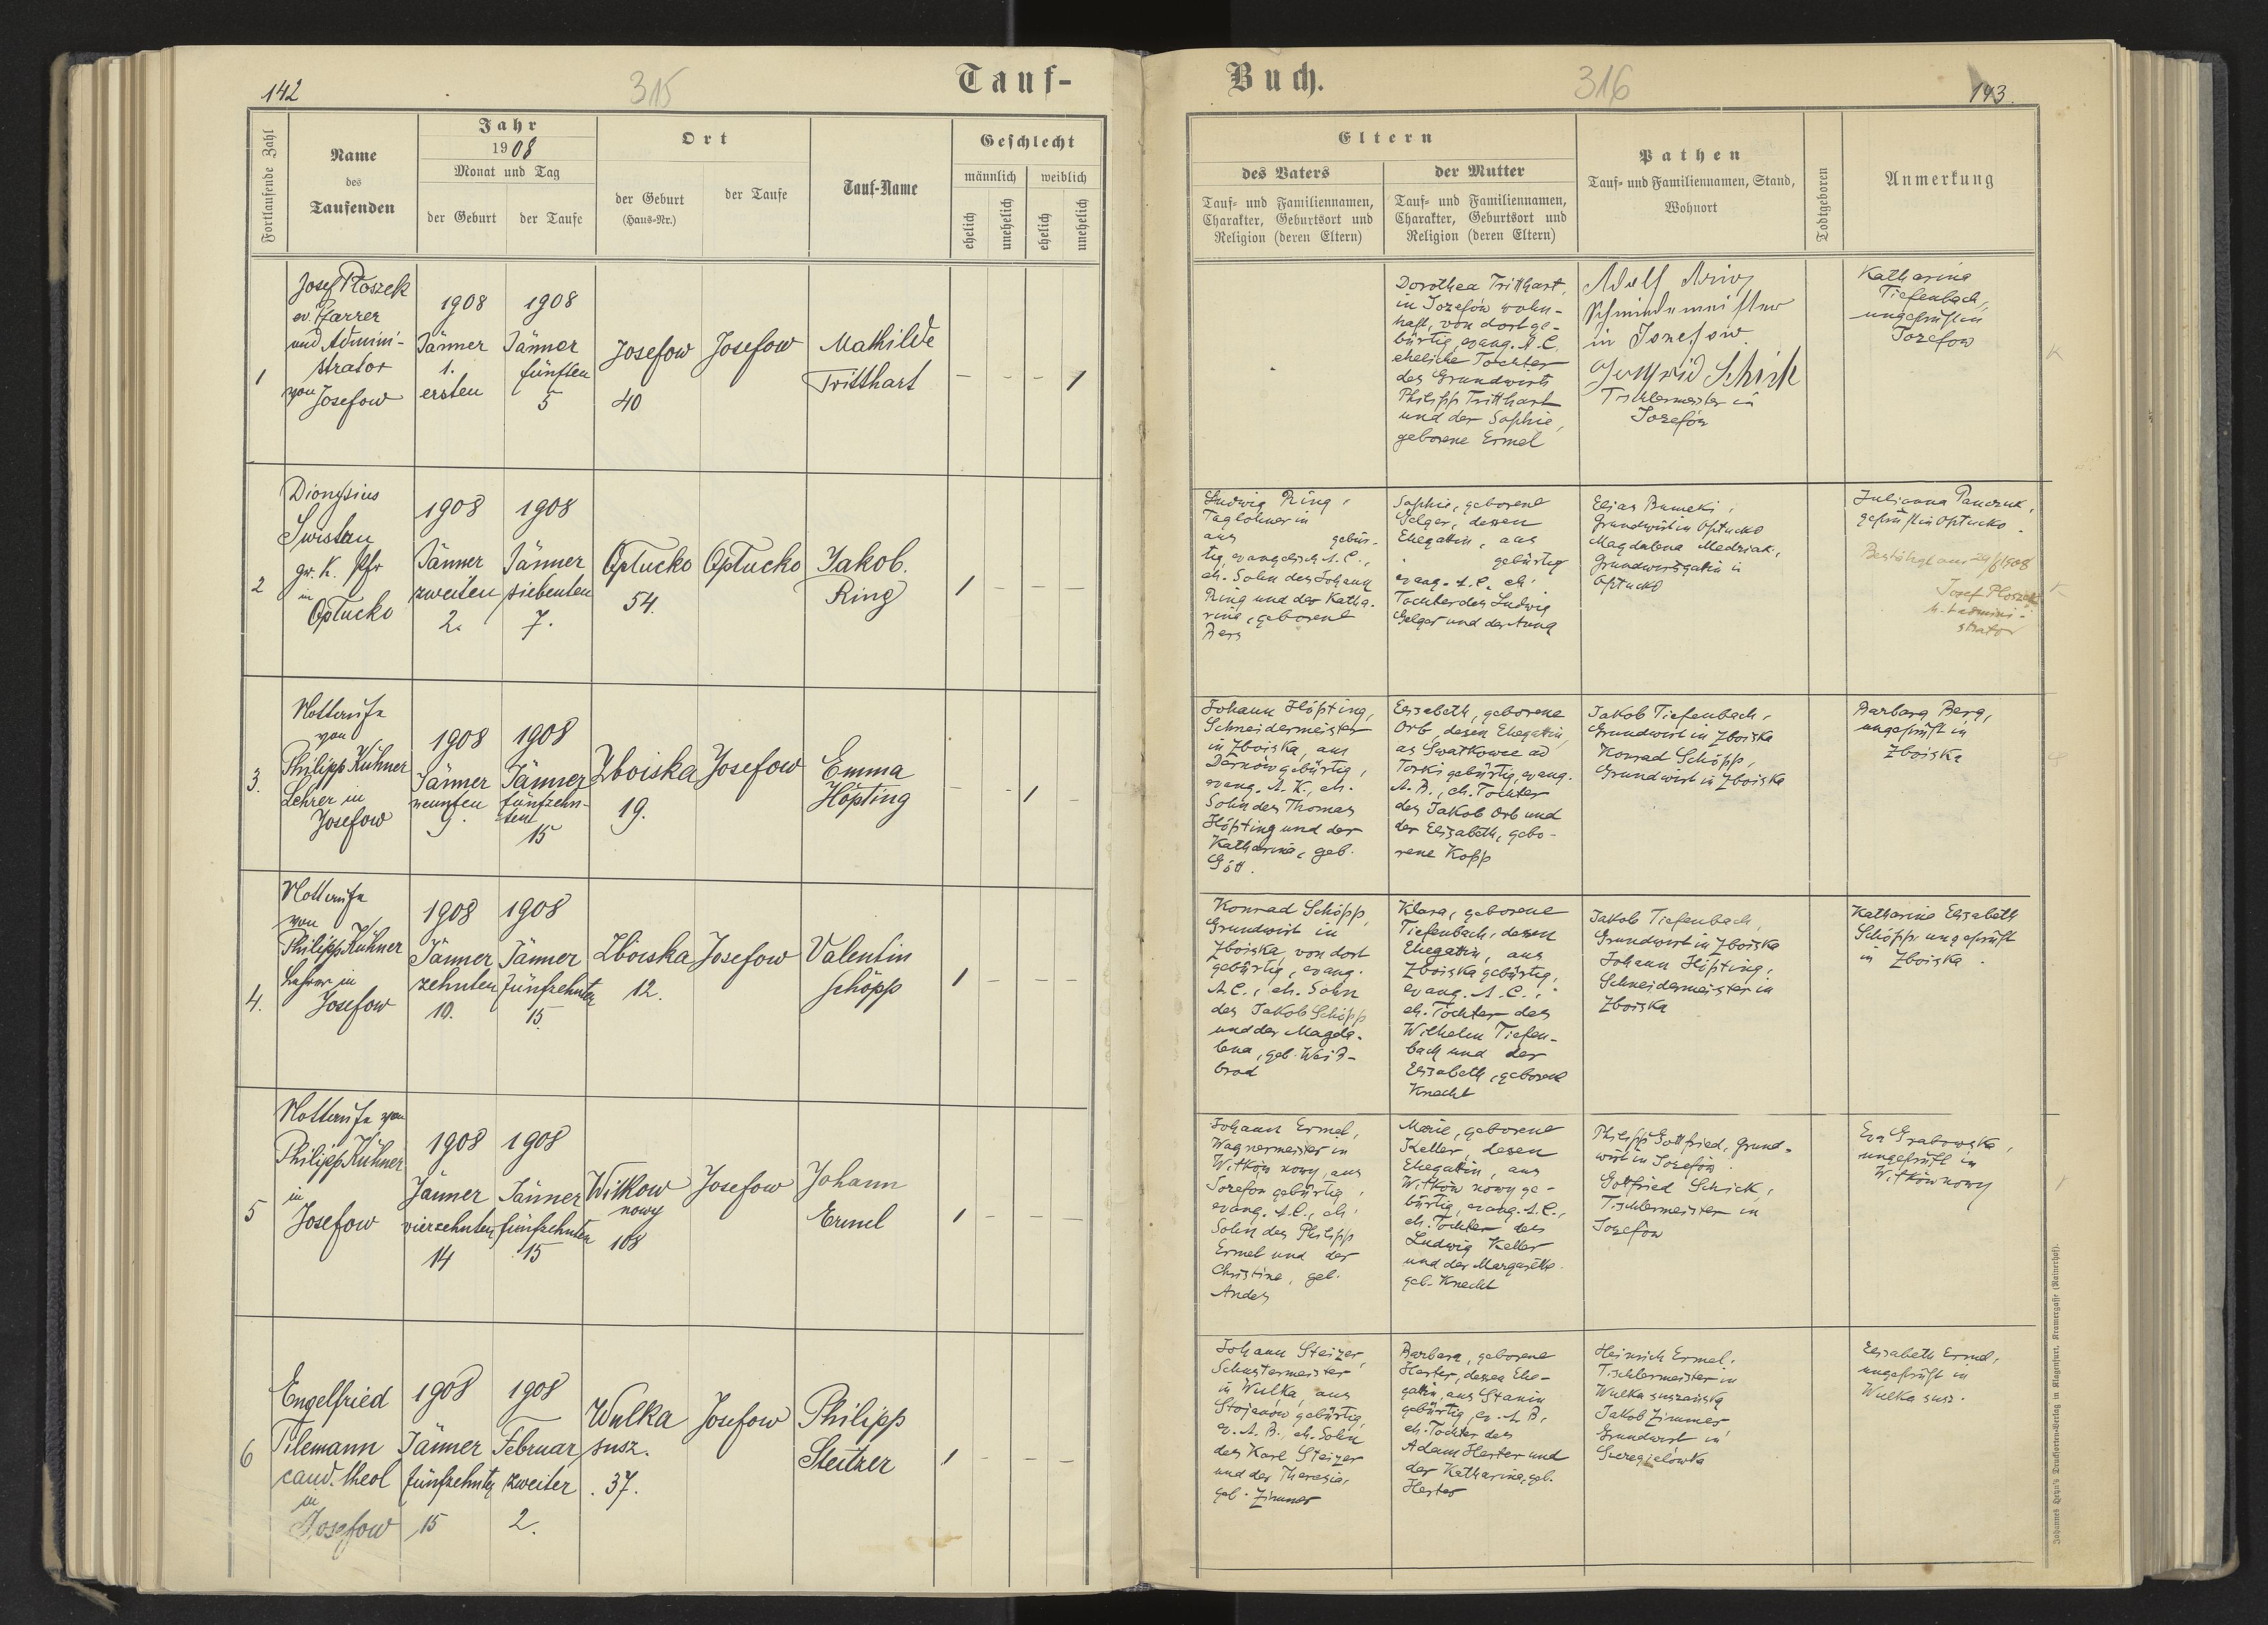 142
315
Tauf-
Fortlaufende Zahl
Name
des
Taufenden
Jahr
1908
Monat und Tag
der Geburt
der Taufe
Ort
der Geburt
(Haus-Nr.)
der Taufe
Tauf-Name
Geschlecht
männlich
weiblich
ehelich
unehelich
ehelich
unehelich
1
Josef Ploszek
ev. Pfarrer
und Admini-
strator
von Josefow
1908
Jänner
1.
ersten
1908
Jänner
fünften
5
Josefow
40
Josefow
Mathilde
Tritthart
— - - 1
2
Dionysius
Swistau
gr. k. Pfr
in
Opłucko
1908
Jänner
zweiten
2.
1908
Jänner
siebenten
7.
Opłucko
54.
Opłucko
Jakob
Ring
1 - — —
3.
Nottaufe
von
Philipp Kühner
Lehrer in
Josefow
1908
Jänner
neunten
9.
1908
Jänner
fünfzehn-
ten
15
Zboiska
19.
Josefow
Emma
Höpting
- - 1 -
4.
Nottaufe
von
Philipp Kühner
Lehrer in
Josefow
1908
Jänner
zehnten
10.
1908
Jänner
fünfzehnten
15.
Zboiska
12.
Josefow
Valentin
Schöpp
1 - — —
5
Nottaufe von
Philipp Kühner
in
Josefow
1908
Jänner
vierzehnten
14
1908
Jänner
fünfzehnten
15
Witkow
nowy
108
Josefow
Johann
Ermel
1 - — —
6
Engelfried
Tilemann
cand. theol
in
Josefow
1908
Jänner
fünfzehnten
15
1908
Februar
zweiter
2.
Wulka
susz.
37.
Josefow
Philipp
Steitzer
1 - — —
Buch.
316
143.
Eltern
des Vaters
Tauf- und Familiennamen,
Charakter, Geburtsort und
Religion (deren Eltern)
der Mutter
Tauf- und Familiennamen,
Charakter, Geburtsort und
Religion (deren Eltern)
Pathen
Tauf- und Familiennamen, Stand,
Wohnort
Todtgeboren
Anmerkung
Dorothea Tritthart,
in Jozefów wohn-
haft, von dort ge-
bürtig, evang. A. C.
eheliche Tochter
des Grundwirts
Philipp Tritthart
und der Sophie,
geborene Ermel
Adolf
in Josefow.
Gottfried Schick
Tischlermeister in
Jozefów
Katharina
Tiefenbach,
ungeprüft in
Jozefow
Ludwig Ring,
Taglöhner in
aus gebür-
tig, evangelisch A. C.,
eh. Sohn des Johann
Ring und der Katha-
rina, geborene
Berg
Sophie, geborene
Gelger, dessen
Ehegattin, aus
gebürtig
evang. A. C. eh.
Tochter des Ludwig
Gelger und der Anna
Elias
Grundwirt in Opłucko
Magdalena Medziak,
Grundwirtsgattin in
Opłucko
Julianna Panczuk,
geprüft in Opłucko.
Bestätigt am 29/6 1908
Josef Ploszek
Admini-
strator
Johann Höpting,
Schneidermeister
in Zboiska, aus
Dernów gebürtig,
evang. A. K., eh.
Sohn des Thomas
Höpting und der
Katharina, geb.
Gött.
Elisabeth, geborene
Orb, dessen Ehegattin,
as Swatkowce ad
Torki gebürtig, evang.
A. B., eh. Tochter
des Jakob Orb und
der Elisabeth, gebo-
rene Kopp
Jakob Tiefenbach,
Grundwirt in Zboiska
Konrad Schöpp,
Grundwirt in Zboiska
Barbara Berg,
ungeprüft in
Zboiska
Konrad Schöpp,
Grundwirt in
Zboiska, von dort
gebürtig, evang.
A. C., eh. Sohn
des Jakob Schöpp
und der Magda-
lena, geb. Weiß-
brod
Klara, geborene
Tiefenbach, dessen
Ehegattin, aus
Zboiska gebürtig,
evang. A. C.,
eh. Tochter des
Wilhelm Tiefen-
bach und der
Elisabeth, geborene
Knecht
Jakob Tiefenbach,
Grundwirt in Zboiska
Johann Höpting,
Schneidermeister in
Zboiska
Katharina Elisabeth
Schöpp ungeprüft
in Zboiska.
Johann Ermel,
Wagnermeister in
Witków nowy, aus
Jozefow gebürtig,
evang. A. C., eh.
Sohn des Philipp
Ermel und der
Christine, geb.
Andes
Marie, geborene
Keller, dessen
Ehegattin, aus
Witków nowy ge-
bürtig, evang. A. C.,
eh. Tochter des
Ludwig Keller
und der Margarethe
geb. Knecht
Philipp Gottfried, Grund-
wirt in Jozefów.
Gottfried Schick,
Tischlermeister in
Jozefow
Eva Grabowska,
ungeprüft in
Witków nowy
Johann Steizer,
Schustermeister
in Wulka, aus
Stojanów gebürtig,
ev. A. B., eh. Sohn
des Karl Steizer
und der Theresia,
geb. Zimmer
Barbara, geborene
Herter, dessen Ehe-
gattin, aus Stanin
gebürtig, ev. A. B.,
eh. Tochter des
Adam Herter und
der Katharina, geb.
Herter
Heinrich Ermel,
Tischlermeister in
Wulka suszańska
Jakob Zimmer
Grundwirt in
Szeregielówka
Elisabeth Ermel,
ungeprüft in
Wulka susz.
Johannes Heyn's Drucksorten-Verlag in Klagenfurt, Kramergasse (Rainerhof).